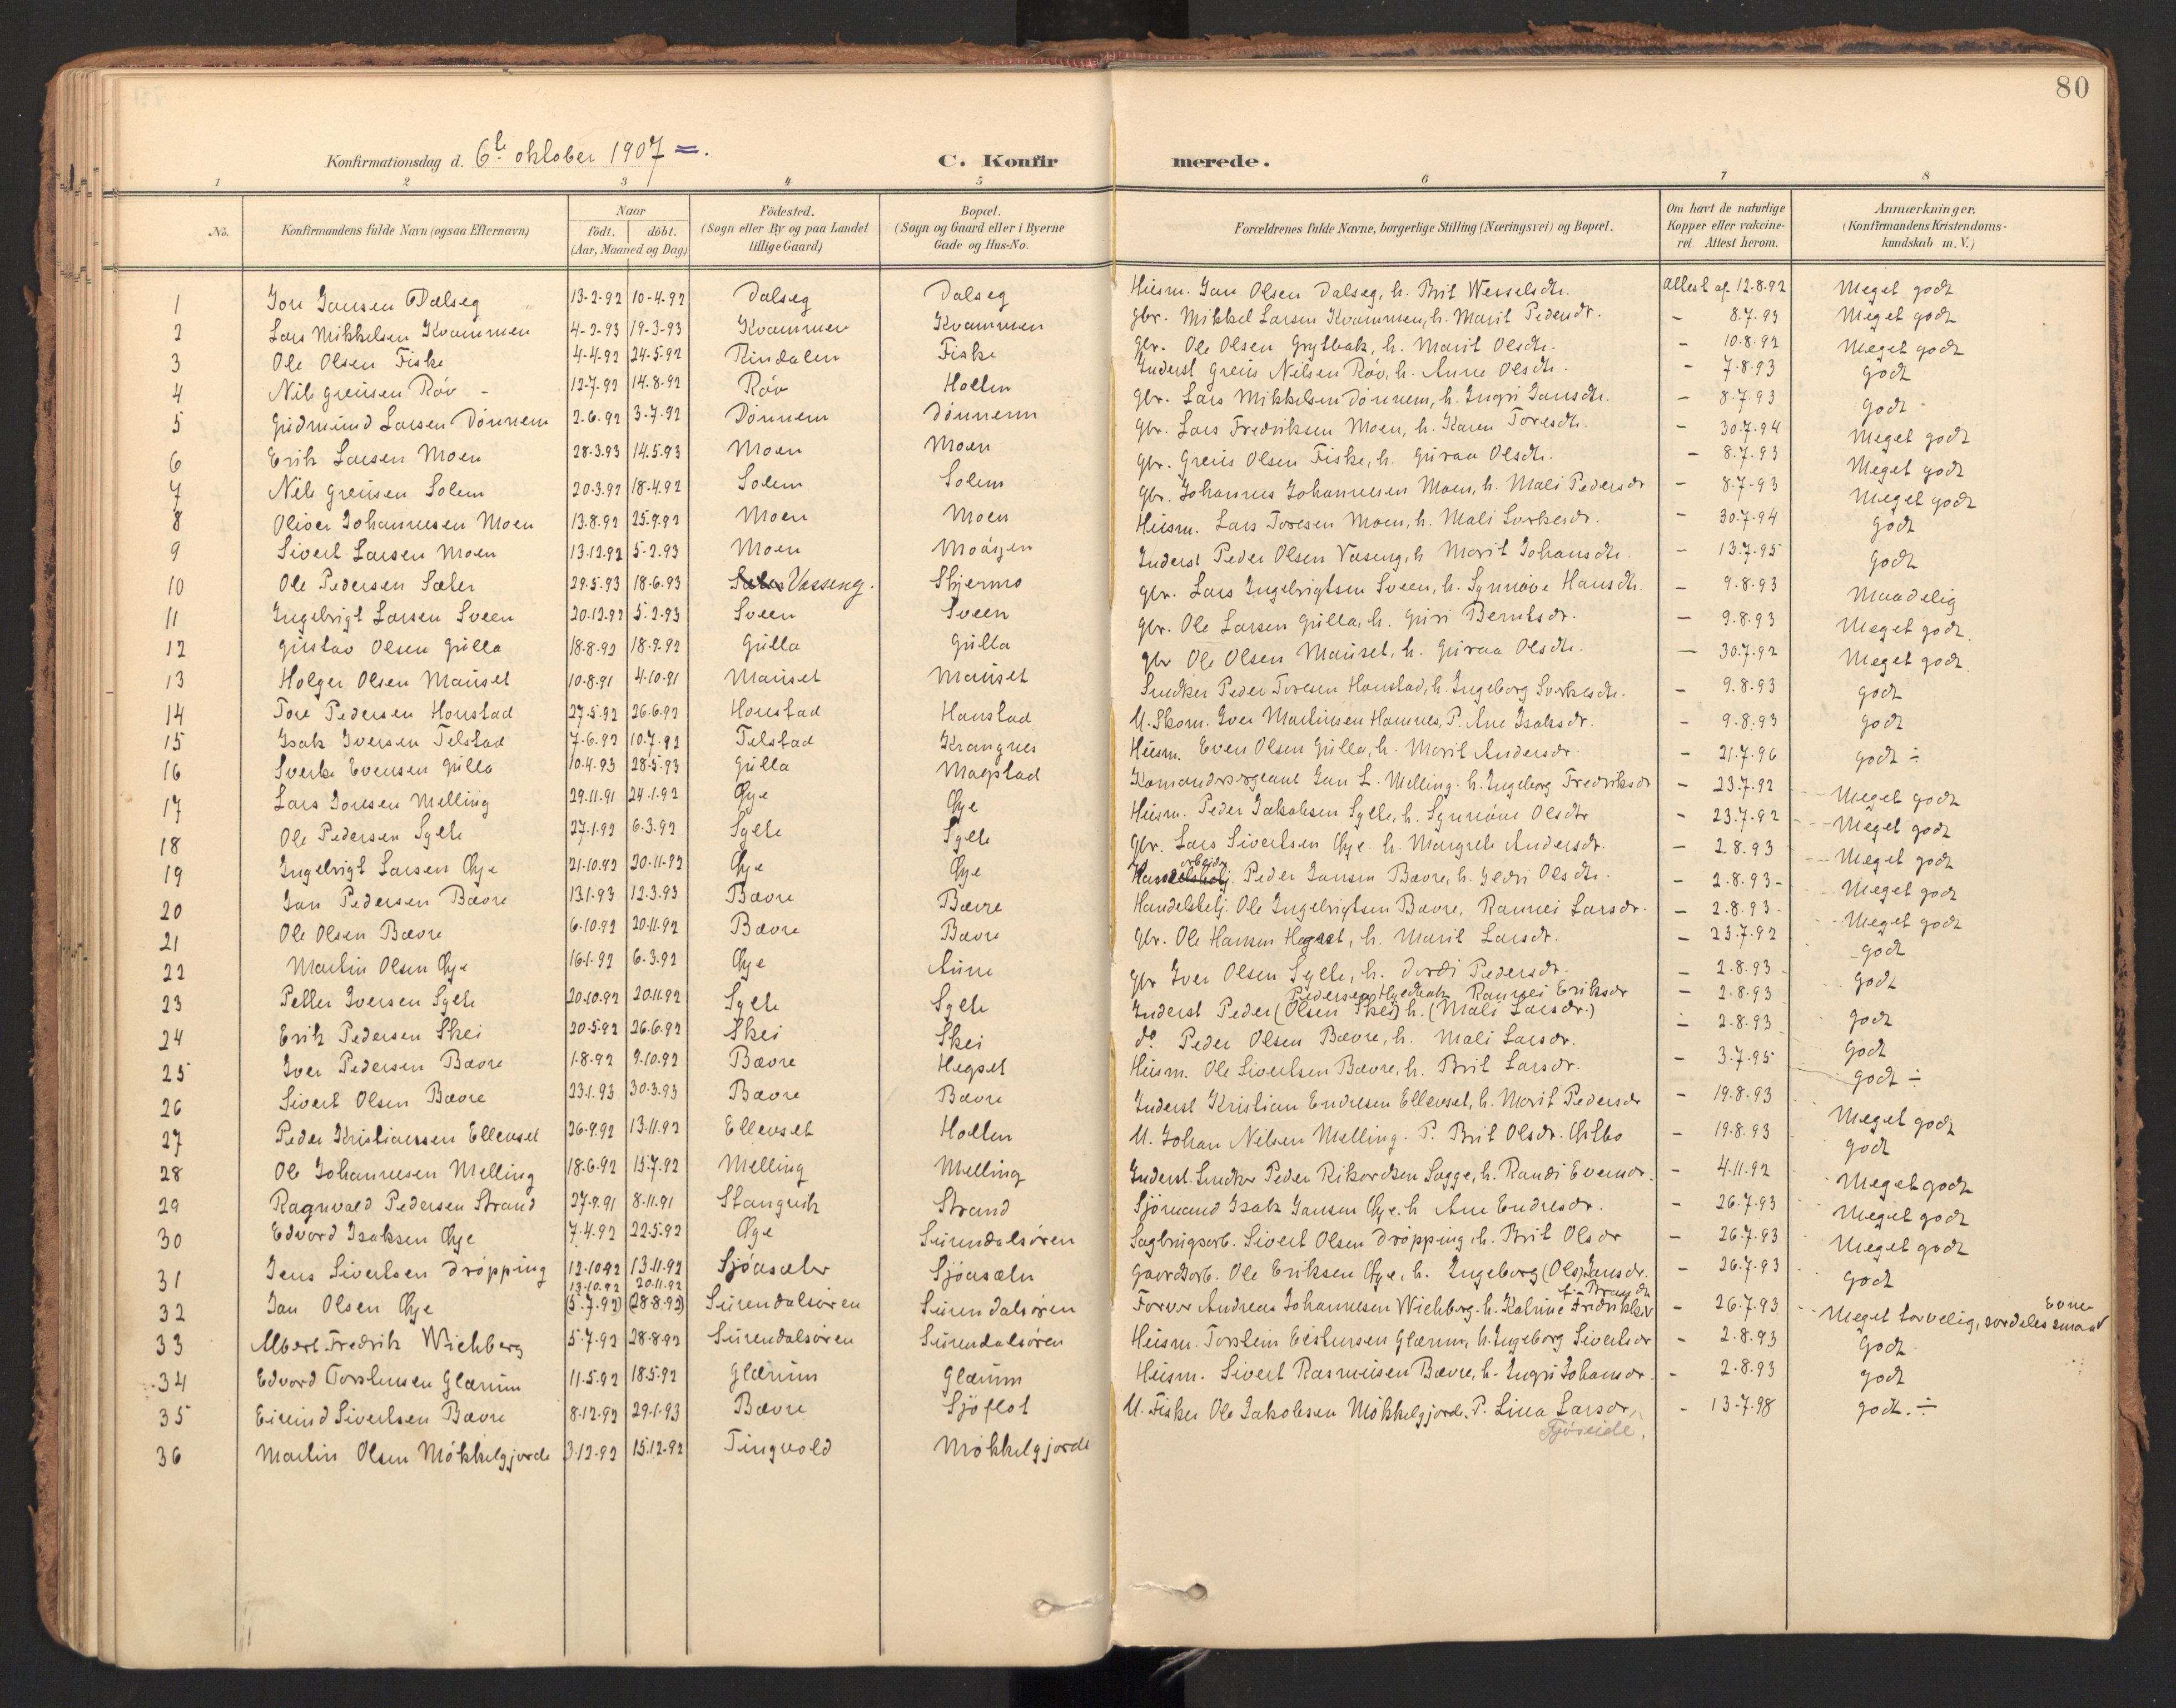 80
Konfirmationsdag d. 6te oktober 1907 =. C. Konfirmerede.
1 2 3 4 5 6 7 8
No. Konfirmandens fulde Navn (ogsaa Efternavn) Naar födt. döbt. (Aar, Maaned og Dag) Födested. (Sogn eller By og paa Landet tillige Gaard) Bopæl. (Sogn og Gaard eller i Byerne Gade og Hus-No. Forældrenes fulde Navne, borgerlige Stilling (Næringsvei) og Bopæl. Om havt de naturlige Kopper eller vakcineret. Attest herom. Anmærkninger. (Konfirmandens Kristendomskundskab m. V.)
1 Jon Jansen Dalseg 13-2-92 10-4-92 Dalseg Dalseg Husm. Jan Olsen Dalseg, h. Brit Wesselsdtr. Attest af 12-8-92 Meget godt
2 Lars Mikkelsen Kvammen 4-2-93 19-3-93 Kvammen Kvammen gbr. Mikkel Larsen Kvammen, h. Marit Pedersdr. - 8.7.93 Meget godt
3 Ole Olsen Fiske 4-4-92 24-5-92 Rindalen Fiske gbr. Ole Olsen Grytbak, h. Marit Olsdtr. - 10-8-92 Meget godt
4 Nils Greusen Röv - 12-7-92 14.8-92 Röv Holten Inderst Greus Nilsen Röv, h. Anne Olsdtr. - 7-8-93 godt
5 Gudmund Larsen Dönnem 2-6-92 3-7-92 Dönnem Dönnem gbr. Lars Mikkelsen Dönnem, h. Ingri Jansdtr. - 8-7-93 godt
6 Erik Larsen Moen 28-3.93 14.5.93 Moen Moen gbr. Lars Fredriksen Moen, h. Karen Toresdtr. - 30-7-94 Meget godt
7 Nils Greusen Solem 20.3.92 18-4.92 Solem Solem gbr. Greus Olsen Fiske, h. Guraa Olsdtr. - 8-7-93 Meget godt
8 Oliver Johannesen Moen 13.8.92 25.9.92 Moen Moen gbr. Johannes Johannesen Moen, h. Mali Pedersdr - 8-7-93 Meget godt
9 Sivert Larsen Moen 13.12.92 5-2.93 Moen Moásgen Husm. Lars Toresen Moen, h. Mali Sverkesdr. - 30.7.94 godt
10 Ole Pedersen Sæter 29.5.93 18.6.93 Væseng. Skjermo Inderst Peder Olsen Væseng, h Marit Johansdtr. - 13.7.95 godt
11 Ingebrigt Larsen Sveen 20.12.92 5.2.93 Sveen Sveen gbr. Lars Ingebrigtsen Sveen, h. Synnöve Hansdtr. - 9.8.93 Maadelig
12 Gustav Olsen Gulla 18.8.92 18.9.92 Gulla Gulla gbr. Ole Larsen Gulla, h. Guri Berntsdr. - 9.8.93 Meget godt.
13 Holger Olsen Mauset 10.8.91 4.10.91 Mauset Mauset gbr Ole Olsen Mauset, h. Guraa Olsdtr. - 30.7.92 Meget godt.
14 Tore Pedersen Honstad 27.5.92 26.6.92 Honstad Honstad Snedker Peder Toresen Honstad, h. Ingeborg Sverkesdtr. - 9.8.93 godt
15 Isak Iversen Telstad 7-6.92 10.7.92 Telstad Krangnes U. Skom. Iver Martinsen Hamnes, P. Ane Isaksdr. - 9.8.93 godt
16 Sverke Evensen Gulla 10.4.93 28.5.93 Gulla Magstad Husm. Even Olsen Gulla, h. Marit Andersdr. - 21.7.96 godt ÷
17 Lars Jonsen Melling 29.11.91 24.1.92 Øye Øye Komandersergeant Jan L. Melling. h. Ingeborg Fredriksdr - 23.7.92 Meget godt
18 Ole Pedersen Sylte 27.1.92 6.3.92 Sylte Sylte Husm. Peder Jakobsen Sylte, h. Synnöve Olsdtr - 23.7.92 Meget godt
19 Ingebrigt Larsen Øye 21.10.92 20.11.92 Øye Øye gbr. Lars Sivertsen Øye. h. Margrete Andersdr. - 2.8.93 Meget godt
20 Jan Pedersen Bævre 13.1.93 12.3.93 Bævre Bævre arbeider Peder Jansen Bævre, h. Gldri Olsdtr. - 2.8.93 - Meget godt
21 Ole Olsen Bævre 6.10.92 20.11.92 Bævre Bævre Handelsbetj. Ole Ingebrigtsen Bævre, Rannei Larsdr. - 2.8.93 - Meget godt
22 Martin Olsen Øye 16.1.92 6.3.92 Øye Aune gbr. Ole Hansen Hegset, h. Marit Larsdr. - 23.7.92 godt
23 Petter Iversen Sylte 20.10.92 20.11.92 Sylte Sylte gbr Iver Olsen Sylte, h. Dordi Pedersdr. - 2.8.93 godt
Pedersen Rannei Eriksdr
24 Erik Pedersen Skei 20.5.92 26.6.92 Skei Skei Inderst Peder (Olsen Skei) h. (Mali Larsdr.) - 2.8.93 godt
25 Iver Pedersen Bævre 1-8.92 9.10.92 Bævre Hegset do. Peder Olsen Bævre, h. Mali Larsdr. - 2.8.93 godt
26 Sivert Olsen Bævre 23.1.93 30.3.93 Bævre Bævre Husm. Ole Sivertsen Bævre, h. Brit Larsdr. - 3.7.95 godt ÷
27 Peder Kristiansen Ellevset 26.9.92 13.11.92 Ellevset Holten Inderst Kristian Endresen Ellevset, h. Marit Pedersdr - 19.8.93 Meget godt
28 Ole Johannesen Melling 18.6.92 15.7.92 Melling Melling U. Johan Nilsen Melling. P. Brit Olsdr. - 19.8.93 godt
29 Ragnvald Pedersen Strand 27.9.91 8.11.91 Stangvik Strand Inderst. Snedker Peder Rikardsen Sagge, h. Randi Evensdr. - 4.11.92 Meget godt
30 Edvard Isaksen Øye 7.4.92 22.5.92 Øye Surendalsören Sjömand Isak Jansen Øye. h Ane Endresdr. - 26.7.93 Meget godt
31 Jens Sivertsen Dröpping 12.10.92 13.11.92 Sjöasæter Sjöasæter Sagbrugsarb. Sivert Olsen Dröpping, h. Brit Olsdr - 26.7.93 Meget godt
13.10.92 20.11.92
32 Jan Olsen Øye (5.7.92) (28.8.92) Surendalsören Surendalsören Gaardsarb. Ole Eriksen Øye, h. Ingeborg (Ols) Jansdr. - 26.7.93 godt
33 Albert Fredrik Wichberg 5.7.92 28.8.92 Surendalsören Surendalsören Farver Andreas Johannesen Wichberg. h. Katrine Fredrikke f. Brandt - 26.7.93 Meget tarvelig, særdeles smaa Evne
34 Edvard Torstensen Glærum 11.5.92 18.5.92 Glærum Glærum Husm. Torstein Eistensen Glærum, h. Ingeborg Sivertsdr - 2.8.93 Godt
35 Eivind Sivertsen Bævre 8.12.92 29.1.93 Bævre Sjöflot Husm. Sivert Rasmusen Bævre, h. Ingri Johansdr. - 2.8.93 godt
36 Martin Olsen Mökkelgjorde 3.12.92 15.12.92 Tingvold Mökkelgjorde U. Fisker Ole Jakobsen Mökkelgjorde. P. Lina Larsdr, - 13.7.98 godt. ÷
Fjöseide.